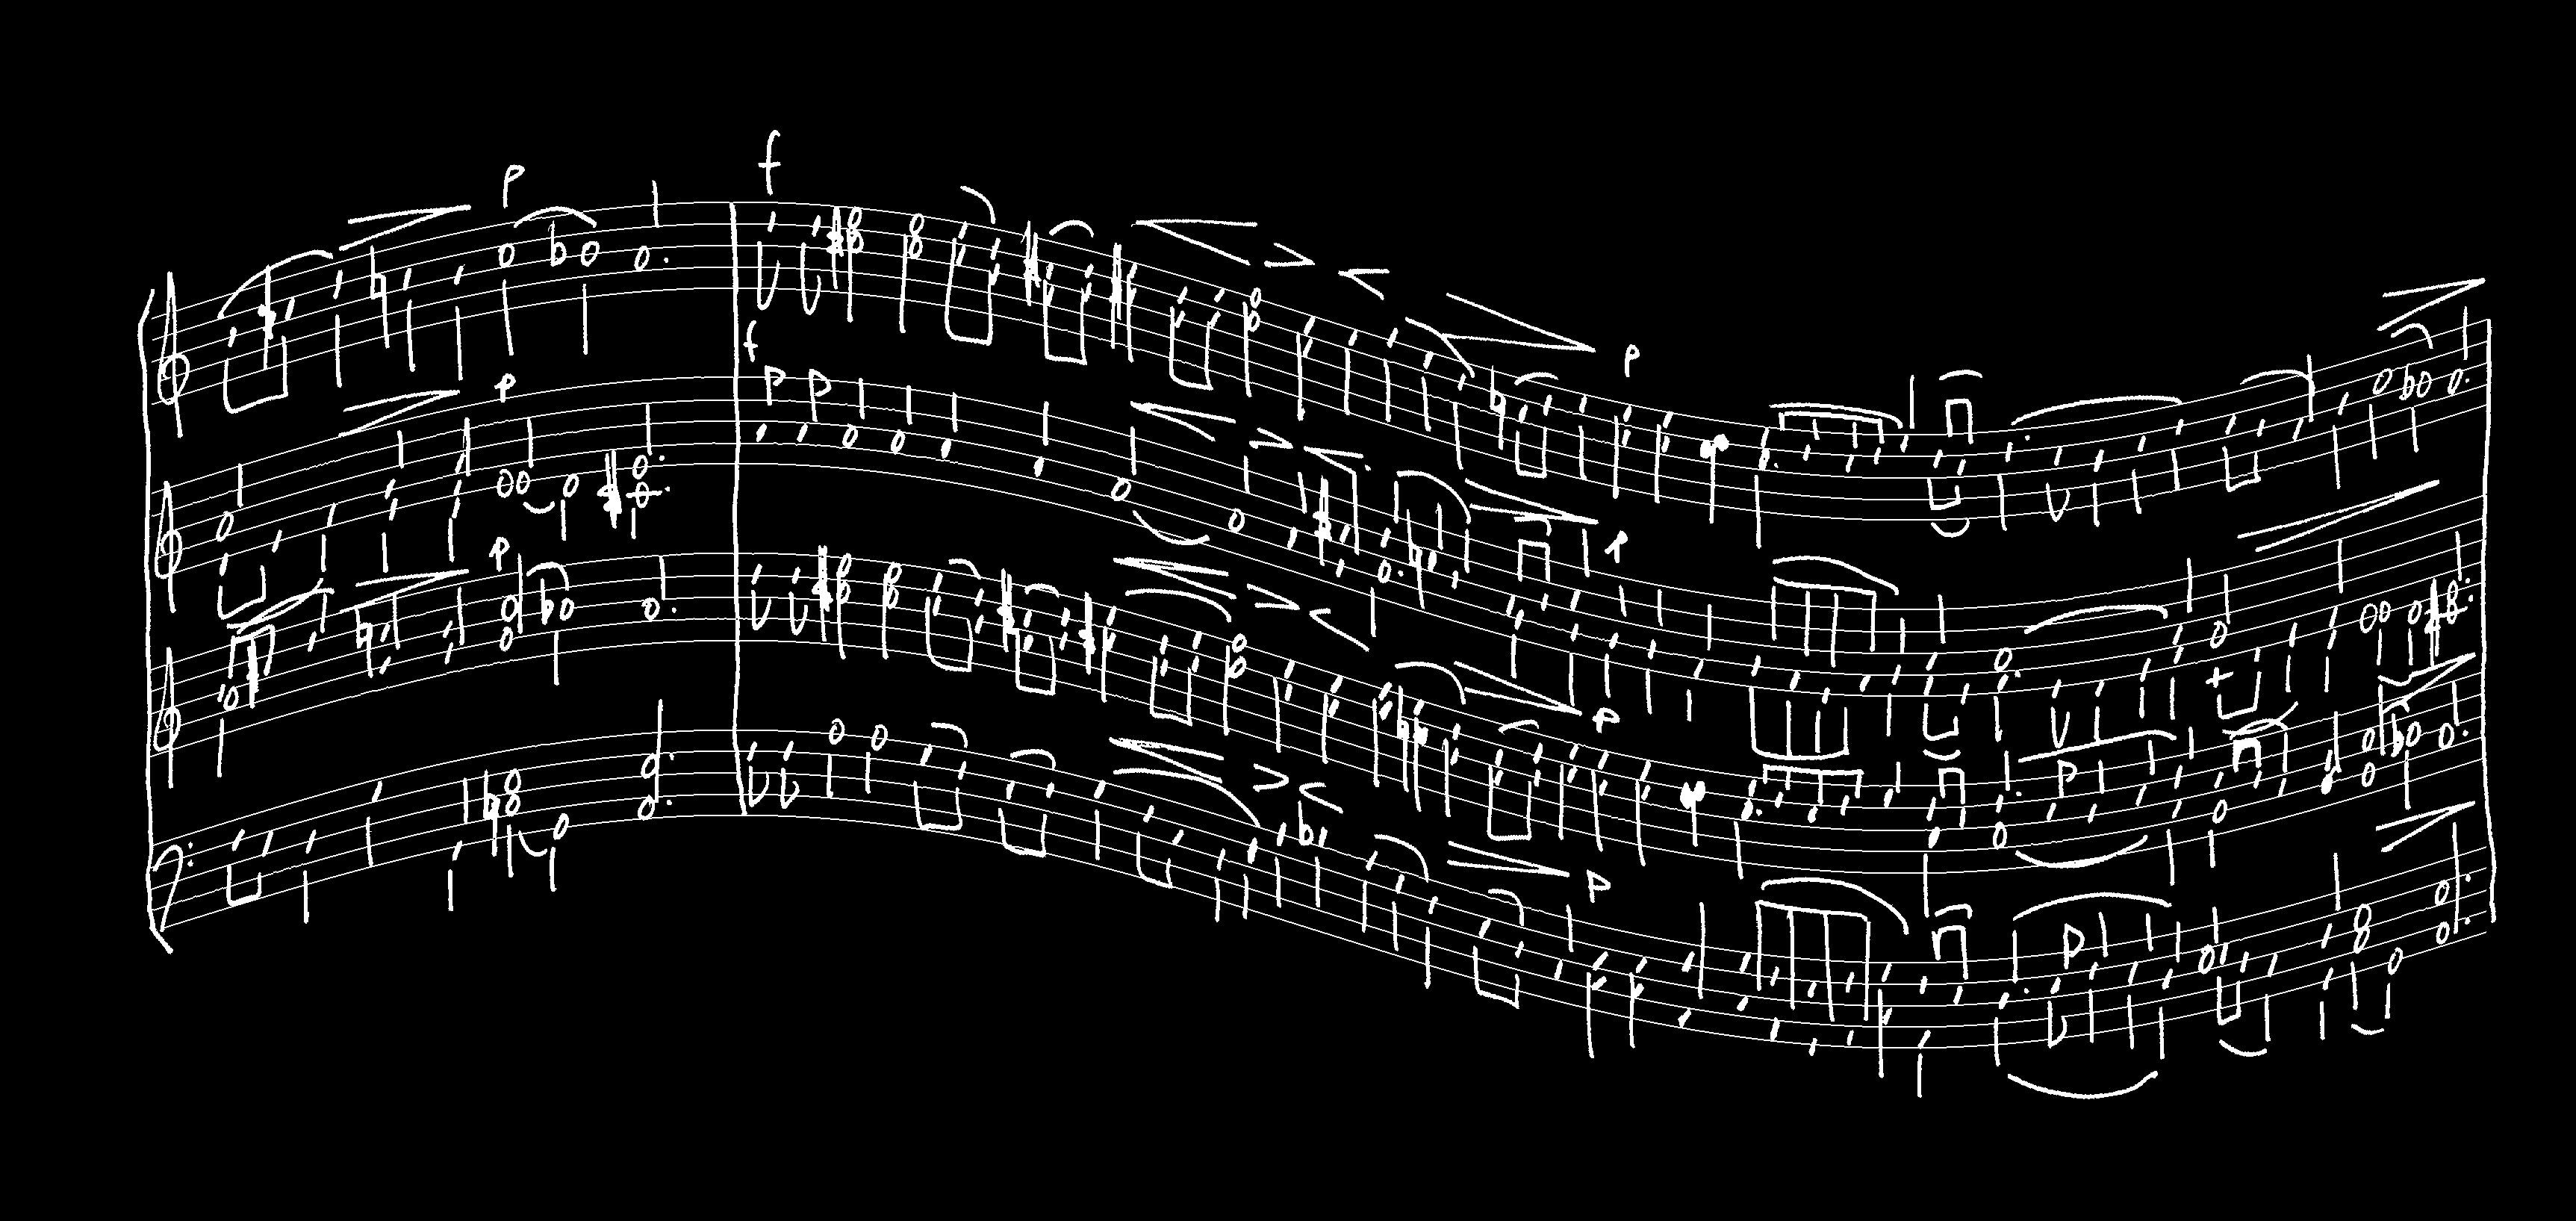 p
f
p
f
p
p
p
p
p